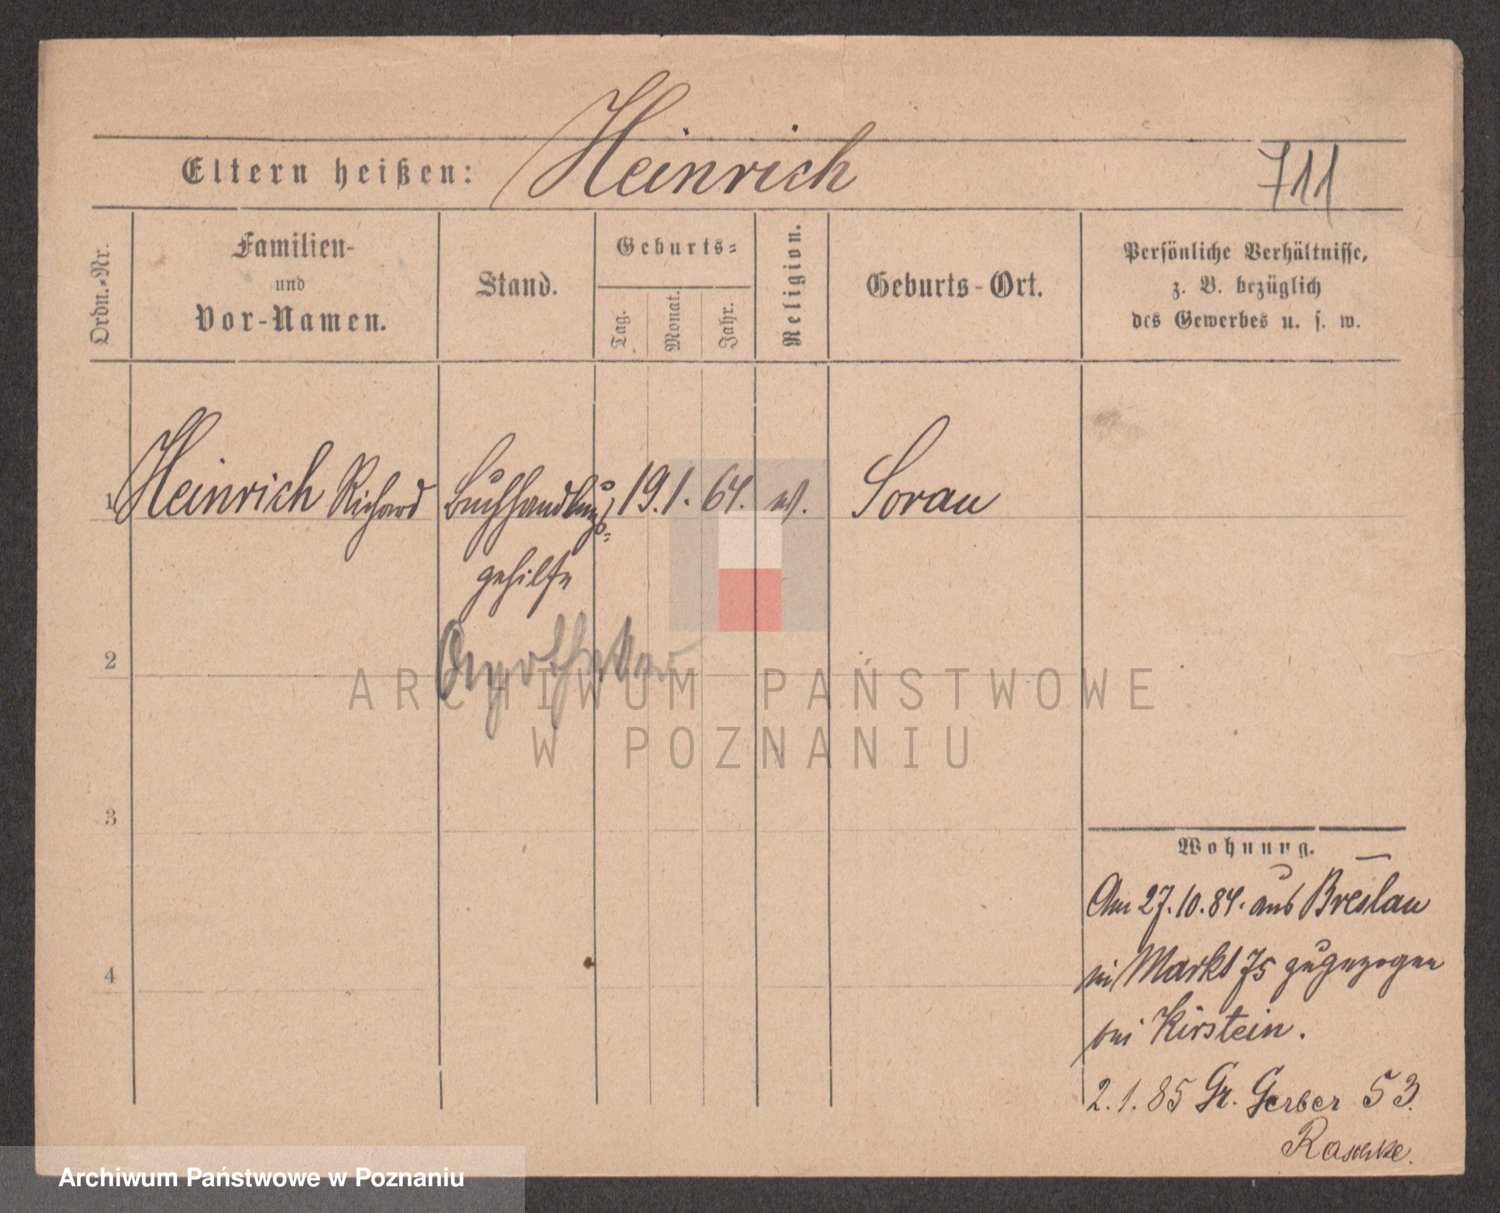 Heinrich
Eltern heißen:
711
Ordn.-Nr.
Familien-
und
Vor-Namen.
Stand.
Geburts-
Tag.
Monat.
Jahr.
Religion.
Geburts-Ort.
Persönliche Verhältnisse,
z. B. bezüglich
des Gewerbes u. s. w.
1 Heinrich Richard Buchhandlungs- 19. 1. 64. ev. Sorau
gehilfe
Apotheker
2
3
4
Wohnung.
Am 27.10.84. aus Breslau
in Markt 75 zugezogen
bei Kirstein.
2. 1. 85 Gr. Gerber 53.
Raschke.
ARCHIWUM PAŃSTWOWE
W POZNANIU
Archiwum Państwowe w Poznaniu